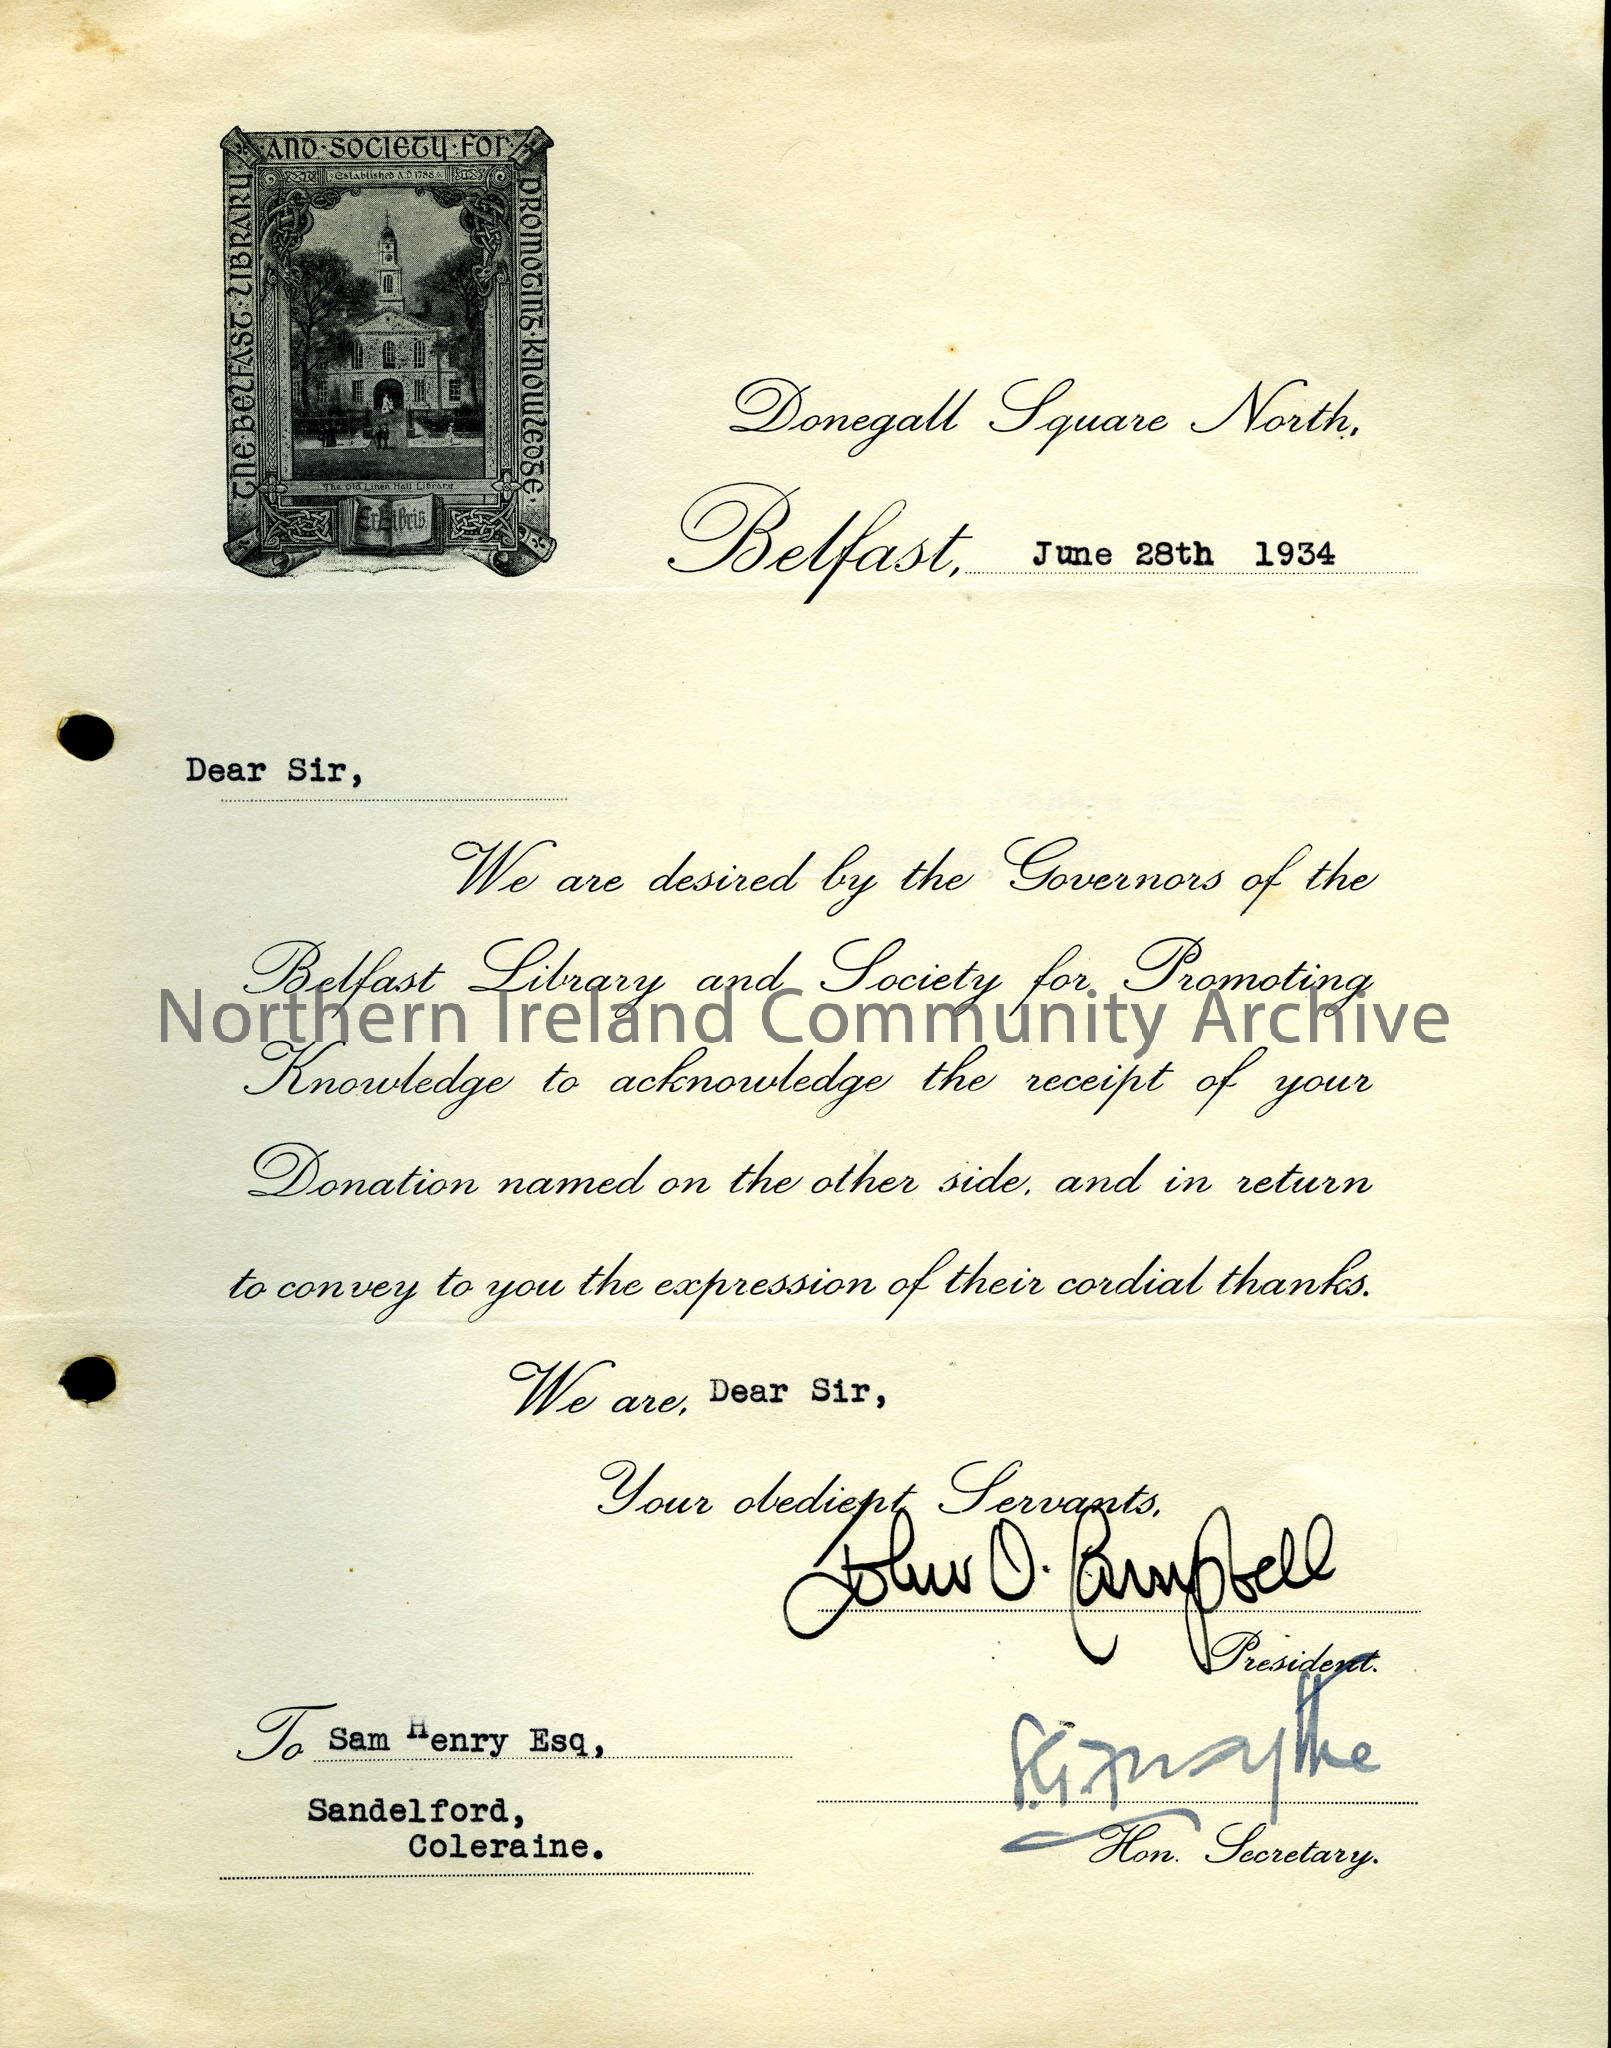 THE·BELFAST·LIBRARY·
AND·SOCIETY·FOR·
PROMOTING·KNOWLEDGE·
Established A.D. 1788
The Old Linen Hall Library
Ex Libris
Donegall Square North,
Belfast, June 28th 1934
Dear Sir,
We are desired by the Governors of the
Belfast Library and Society for Promoting
Northern Ireland Community Archive
Knowledge to acknowledge the receipt of your
Donation named on the other side, and in return
to convey to you the expression of their cordial thanks.
We are, Dear Sir,
Your obedient Servants,
John O. Campbell
President.
To Sam Henry Esq,
Sandelford,
Coleraine.
Hon. Secretary.